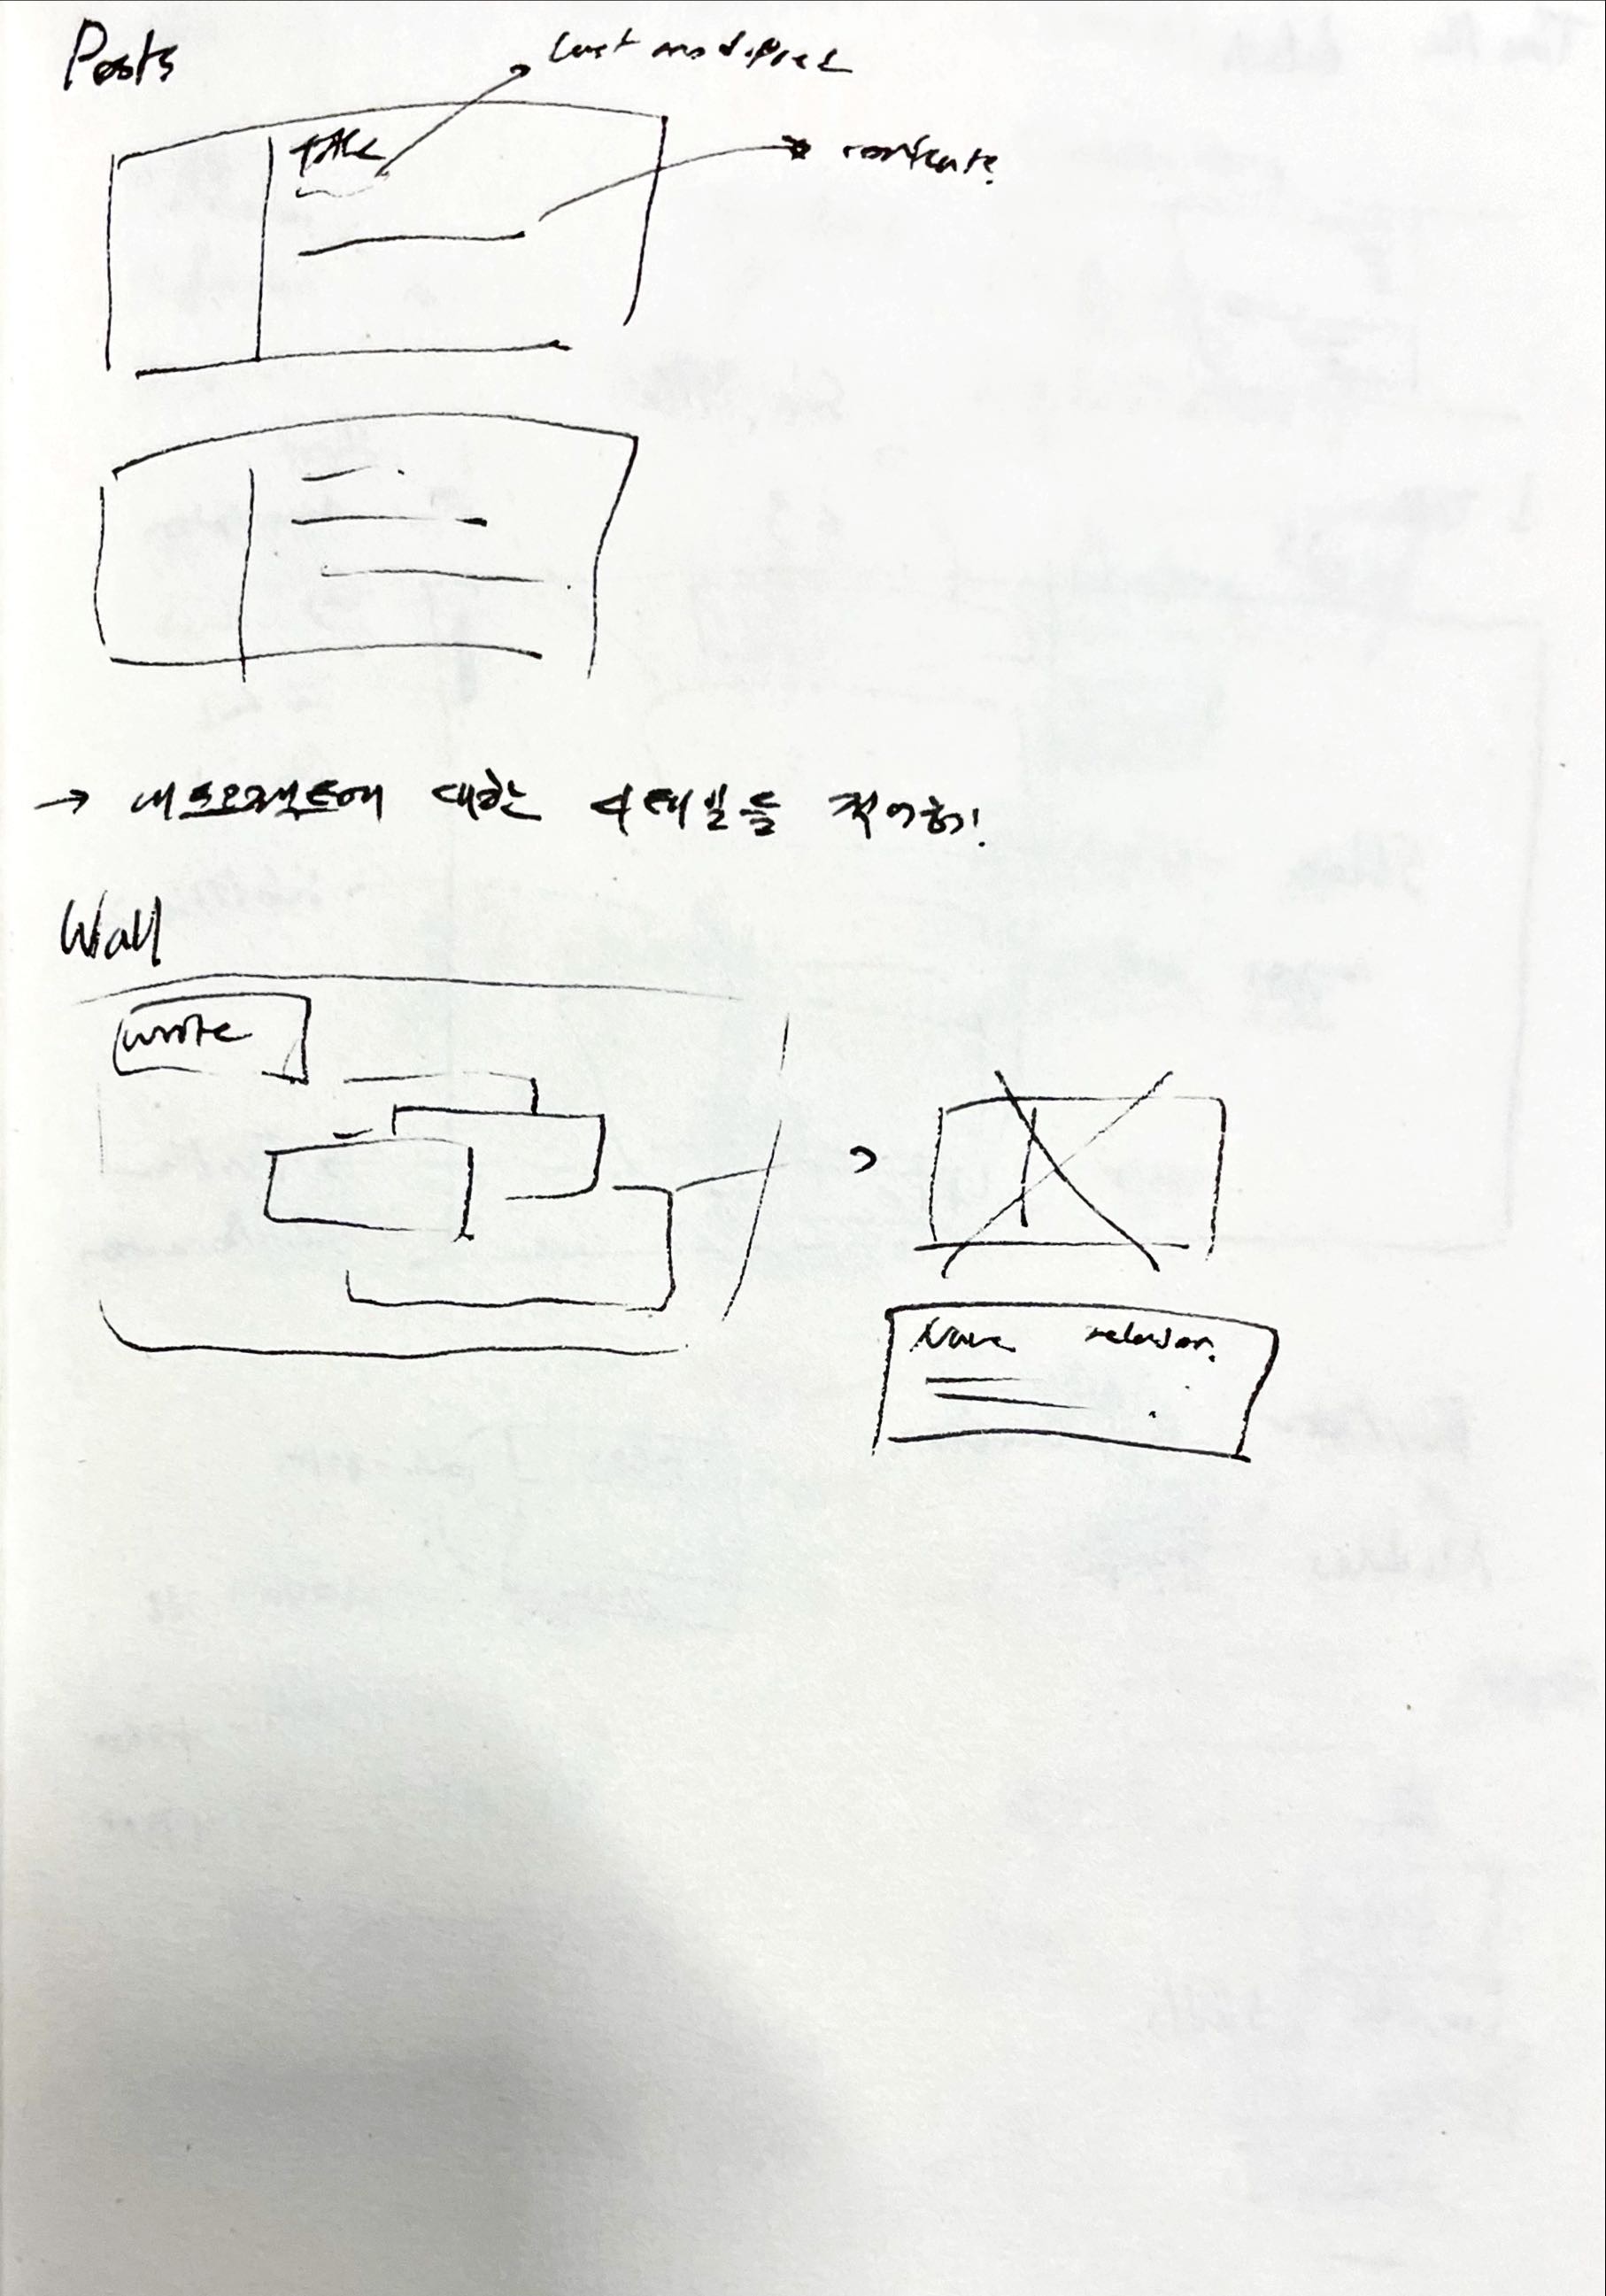 Posts
last modified
title
contents.
→ 내 프로젝트에 대한 디테일을 적어야!
Wall
write
Name relation.